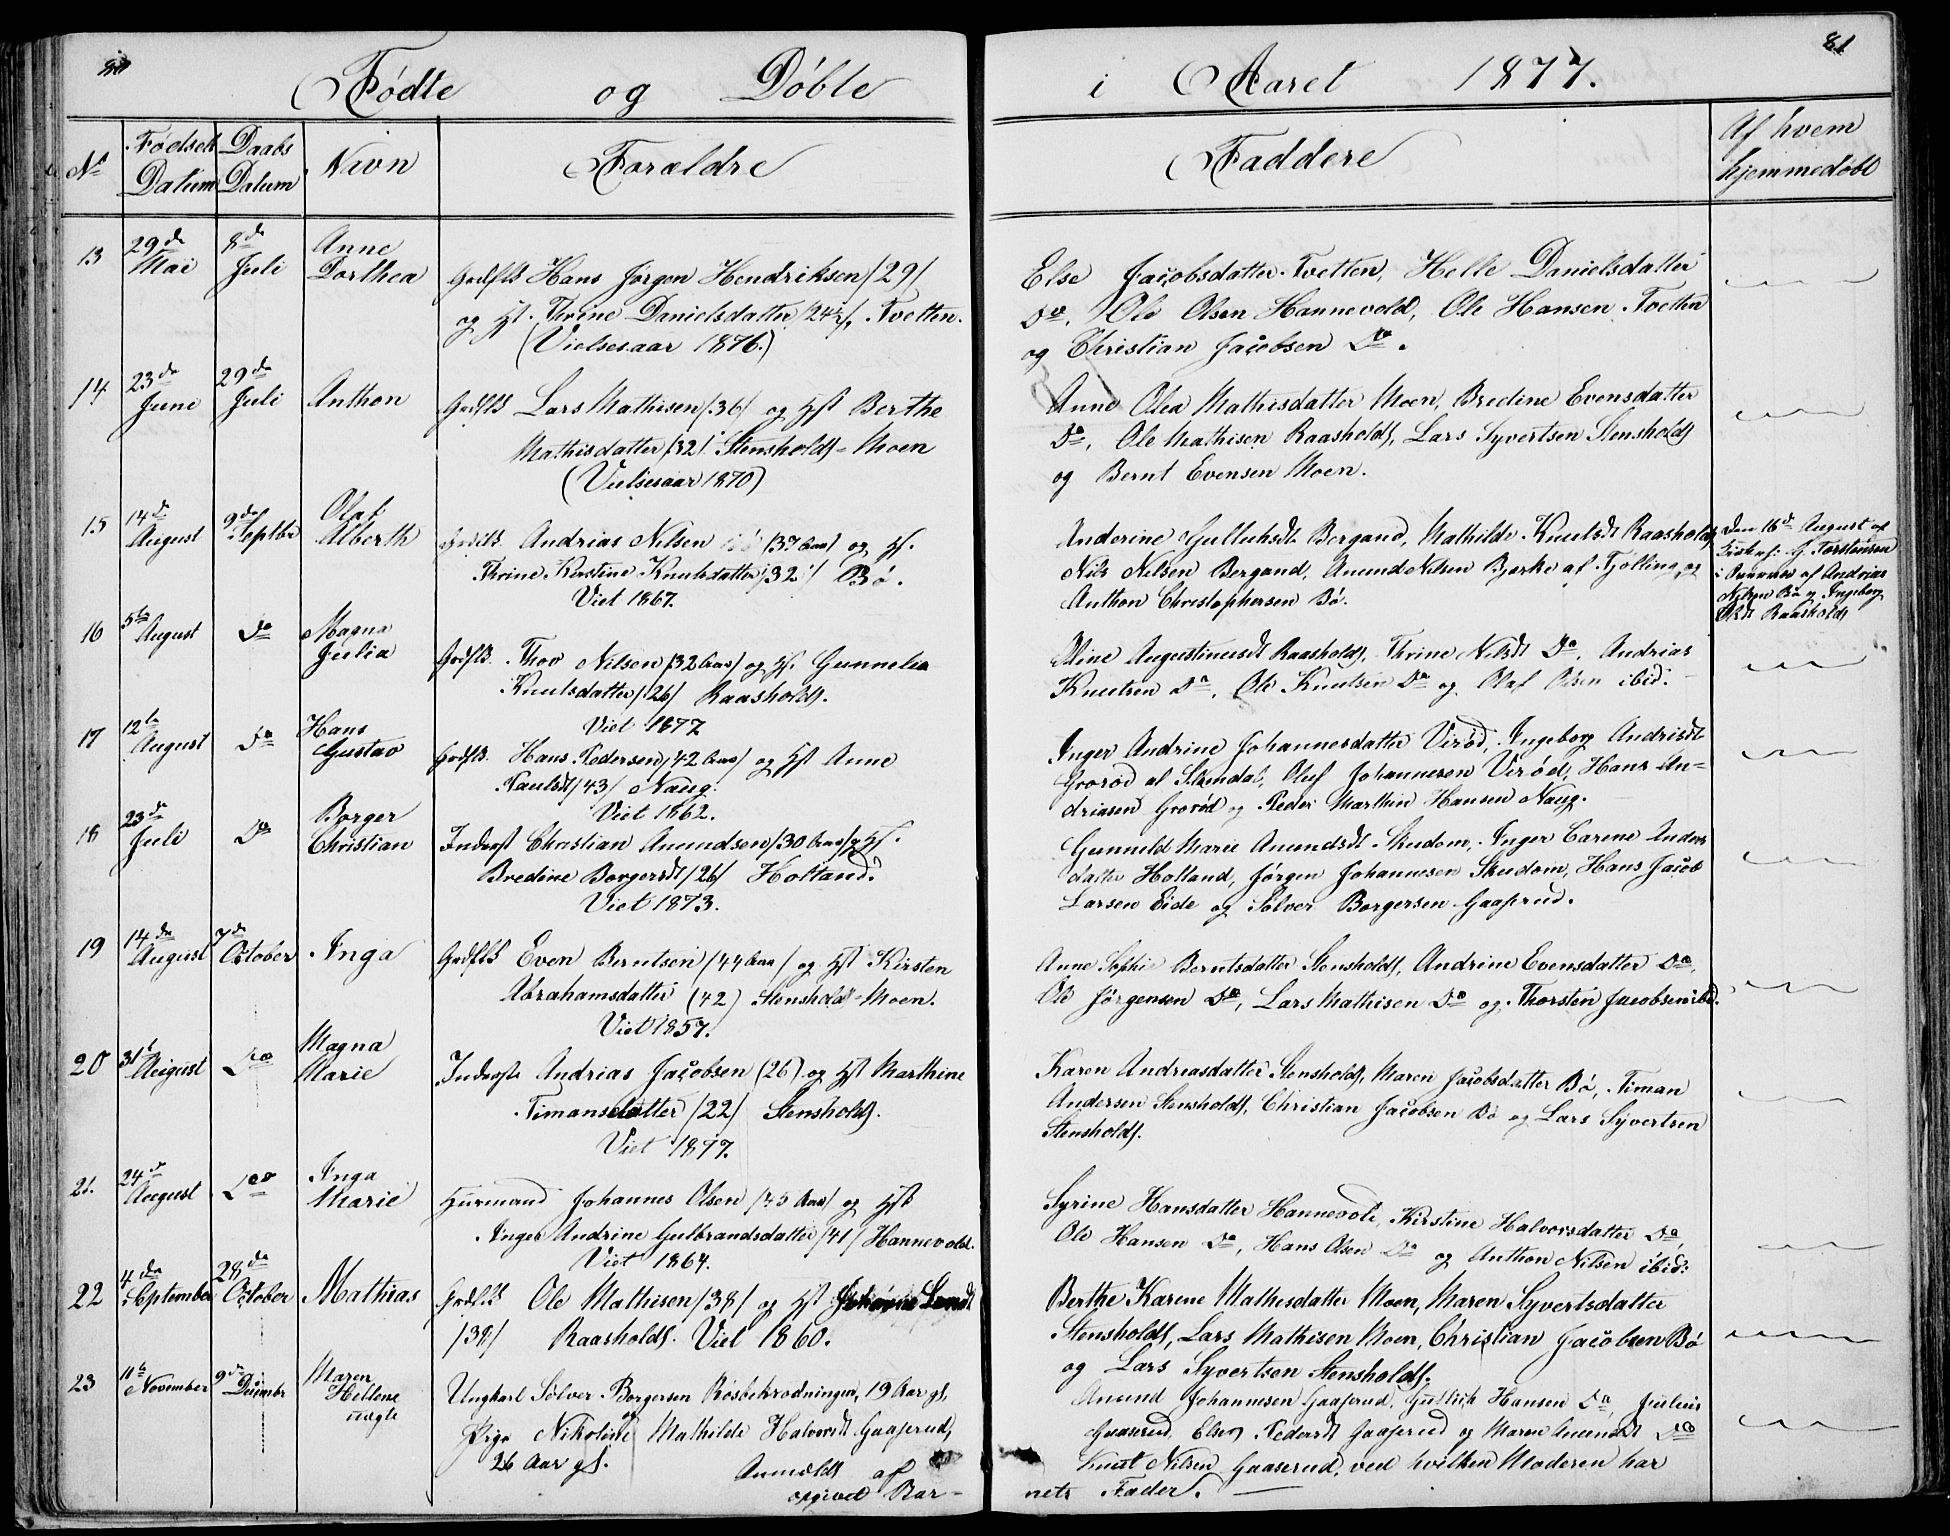 80
Fødte og Døbte
i Aaret 1877.
81
No
Fødsels Datum
Daabs Datum
Navn
Forældre
Faddere
Af hvem hjemmedøbt
13 29de Mai 8de Juli Anne Dorthea
Gaardm. Hans Jørgen Hendriksen /29/
og H. Thrine Danielsdatter /24½/, Tvetten.
(Vielsesaar 1876.)
Else Jacobsdatter Tvetten, Helle Danielsdatter
Do, Ole Olsen Hannevold, Ole Hansen Tvetten
og Christian Jacobsen Do.
14 23de June 29de Juli Anthon
Lars Mathisen /36/ og Hst Berthe
Mathisdatter /32/ Stensholdt-Moen
(Vielsesaar 1870)
Anne Olea Mathisdatter Moen, Bredine Evensdatter
Do, Ole Mathisen Raasholdt, Lars Syvertsen Stensholdt
og Bernt Evensen Moen.
15 14de August 9de Septbr Olaf Alberth
Andrias Nilsen /37 Aar/ og H.
Thrine Kirstine Knutsdatter /32/ Bö.
Viet 1867.
Anderine Gulluhsdt Bergand, Mathilde Knutsdt Raasholdt
Nils Nilsen Bergand, Anund Nilsen Bjerke af Tjølling og
Anthon Christophersen Bö.
Den 16de August af
G. Torstensen
i Nærvær af Andrias
Nilsen Bö og Ingeborg
Olsdt Raasholdt
16 5te August Do Magna Julia
Thov Nilsen /32 Aar/ og H. Gunnelia
Knutsdatter /26/ Raasholdt.
Viet 1877
Oline Augustinusdt Raasholdt, Thrine Nilsdt Do, Andrias
Knutsen Do, Ole Knutsen Do og Olaf Olsen ibid.
17 12te August Do Hans Gustav
Hans Pedersen /42 Aar/ og Hst Anne
Paulsdt /43/ Naug.
Viet 1862.
Inger Andrine Johannesdatter Virød, Ingeborg Andrisdt
Grorød af Slemdal, Oluf Johannesen Virød, Hans An-
driasen Grorød og Peder Marthin Hansen Naug.
18 23de Juli Do Borger Christian
Inderst Christian Anundsen /30 Aar/ og H.
Bredine Borgersdt /26/ Holland.
Viet 1873.
Gunnild Marie Anundsdt Skudom, Inger Carine Anders
datter Holland, Jørgen Johannesen Skudom, Hans Jacob
Larsen Eide og Sølver Borgersen Gaaserud.
19 14de August 7de October Inga
Even Berntsen /44 Aar/ og Hst Kirsten
Abrahamsdatter (42) Stensholdt-Moen.
Viet 1857.
Anne Sophie Berntsdatter Stensholdt, Andrine Evensdatter Do,
Ole Jörgensen Do, Lars Mathisen Do og Thorsten Jacobsen ibd.
20 31te August Do Magna Marie
Inderste Andrias Jacobsen (26) og Hst Marthine
Timansdatter /22/ Stensholdt.
Viet 1877.
Karen Andreasdatter Stensholdt, Maren Jacobsdatter Bö, Timan
Andersen Stensholdt, Christian Jacobsen Bö og Lars Syvertsen
Stensholdt.
21. 24de August Do Inga Marie
Huusmand Johannes Olsen /45 Aar/ og Hst
Inger Andrine Gulbrandsdatter /41/ Hannevold.
Viet 1864.
Syrine Hansdatter Hannevold, Kirstine Halvorsdatter Do,
Ole Hansen Do, Hans Olsen Do og Anthon Nilsen ibid:
22 4de September 28de October Mathias
Ole Mathisen /38/ og Hst
/38/ Raasholdt. Viet 1860.
Berthe Karene Mathisdatter Moen, Maren Syvertsdatter
Stensholdt, Lars Mathisen Moen, Christian Jacobsen Bö
og Lars Syvertsen Stensholdt.
23 11te November 9de Decembr Maren Hellene uægte
Ungkarl Sølver Borgersen Røsbekrødningen, 19 Aar gl.
og
Pige Nikoline Mathilde Halvorsdt Gaaserud,
26 Aar gl. Anmeldt af
opgivet Bar-
Anund Johannesen Gaaserud, Gullich Hansen Do, Julius
Gaaserud, Else Pedersdt Gaaserud og Maren Anundsdt Do
Knut Nilsen Gaaserud, ved hvilken Moderen har
nets Fader.